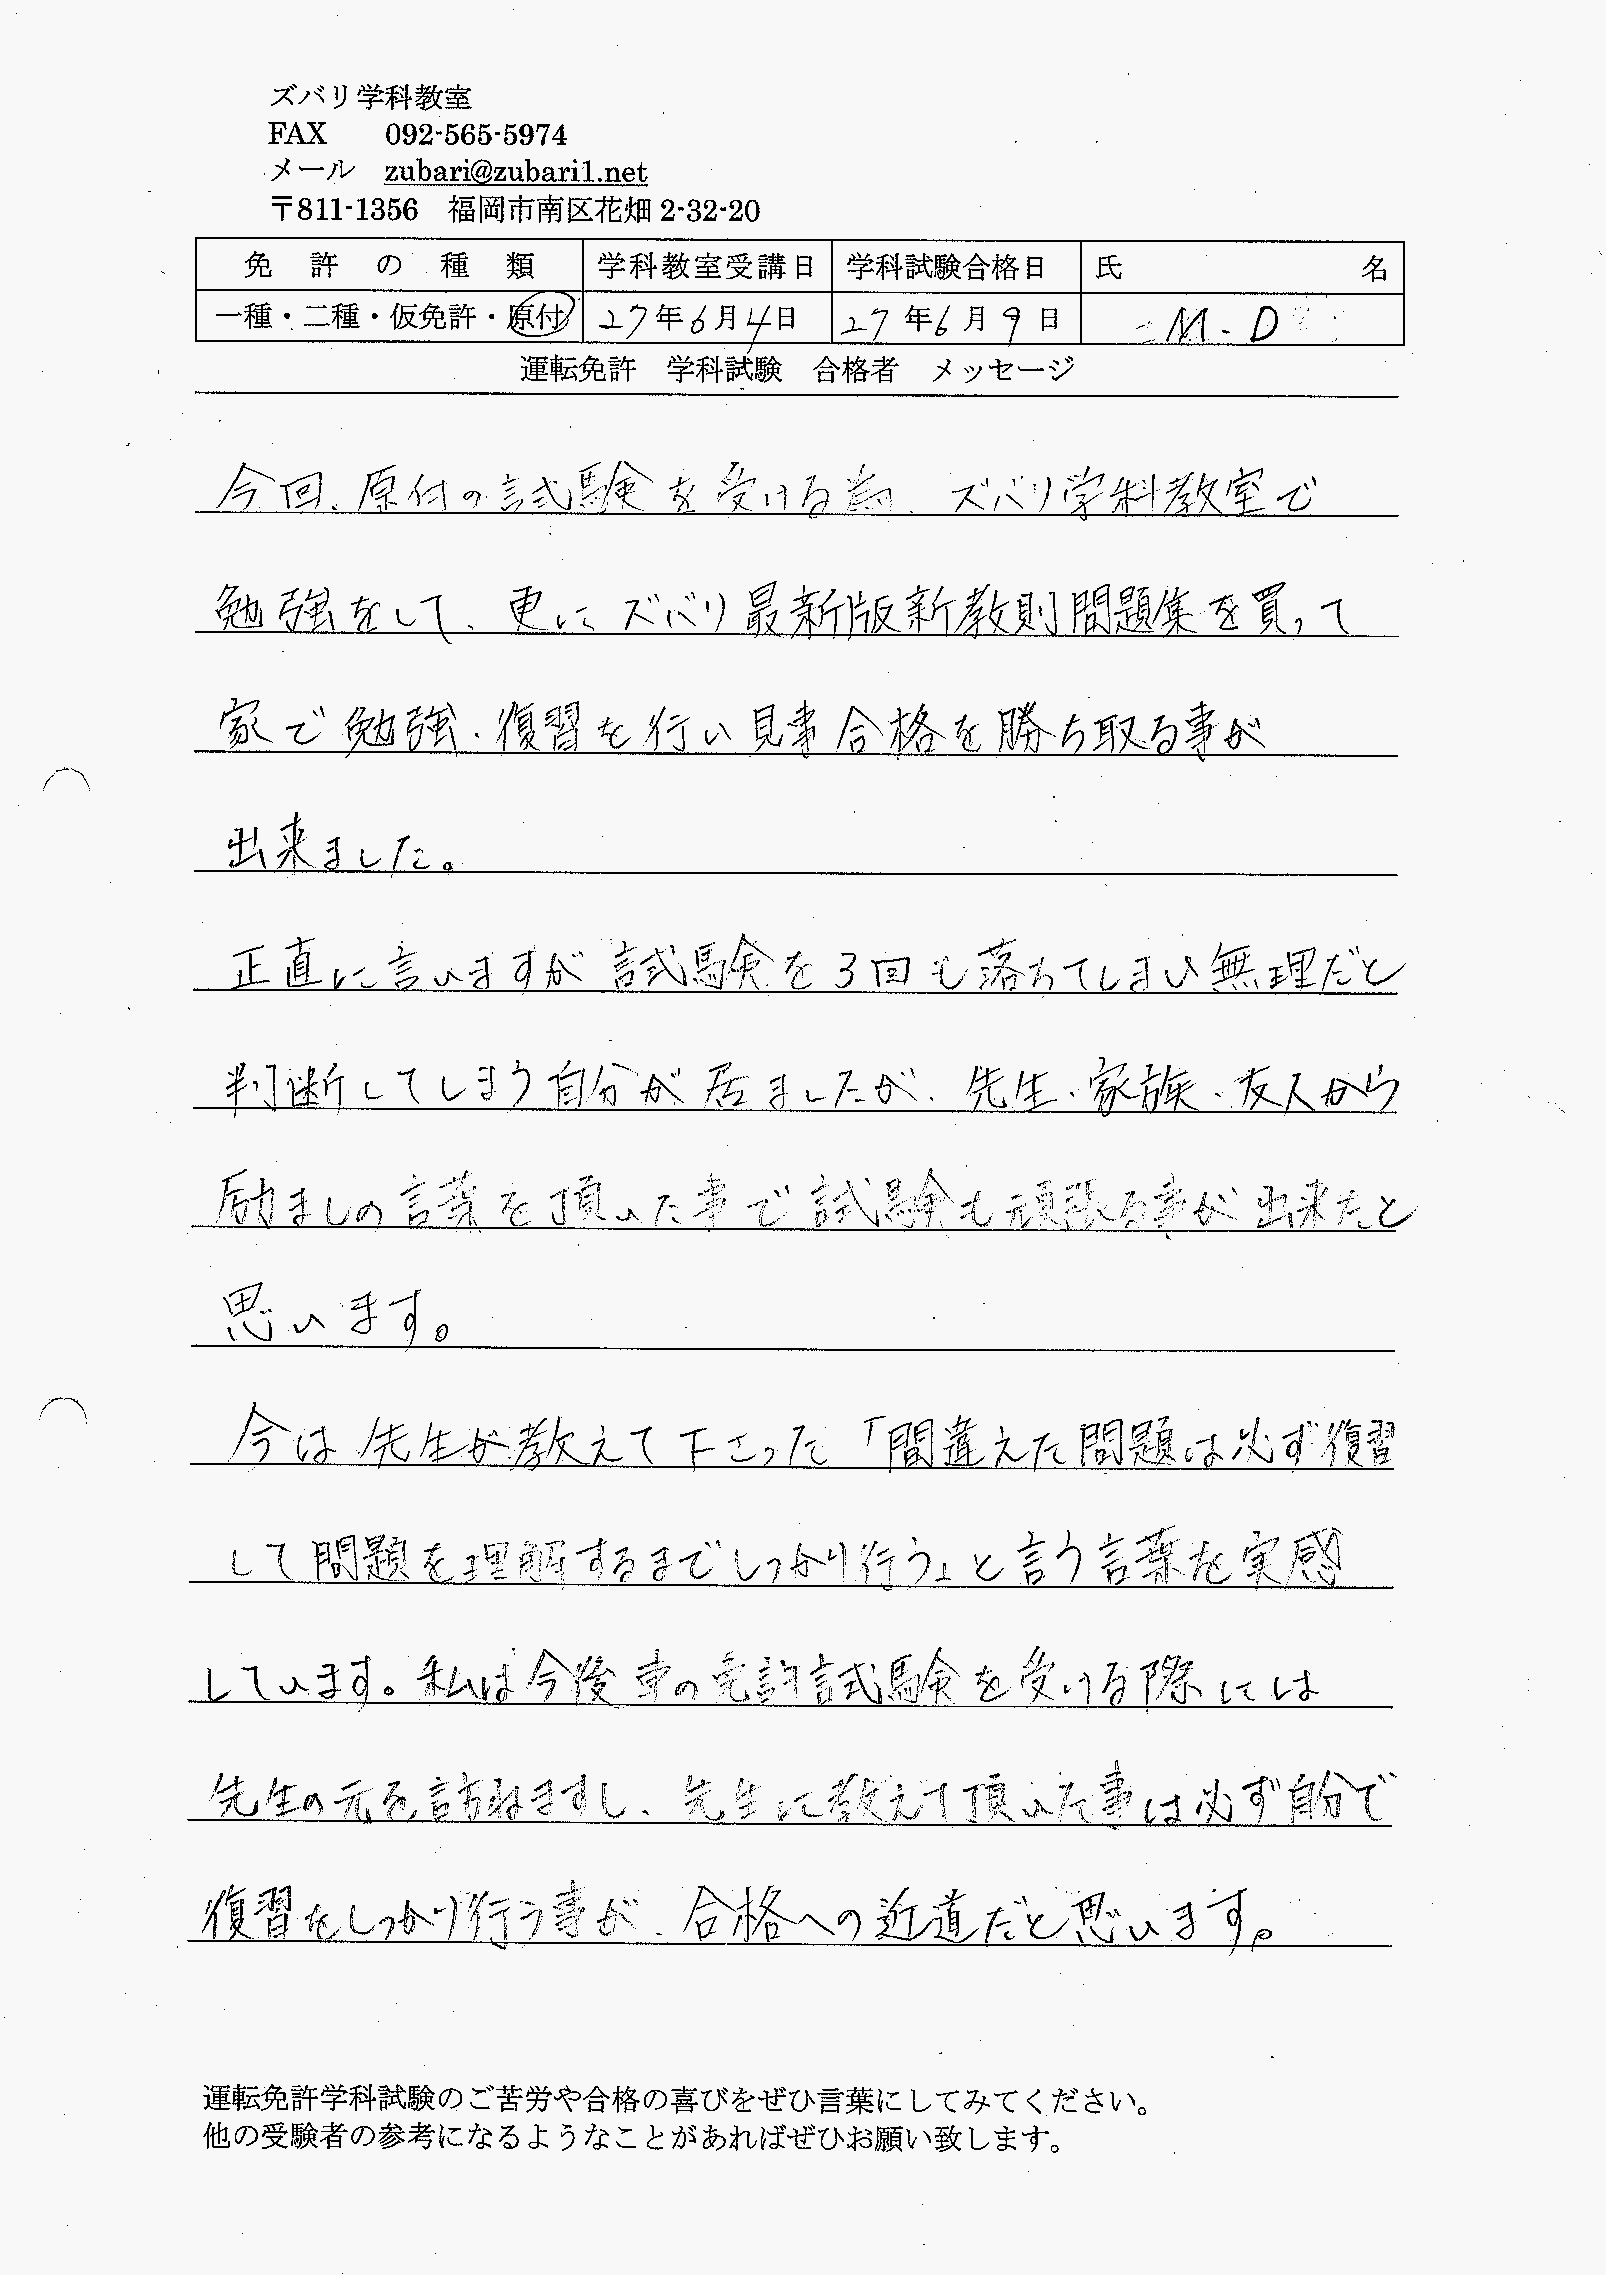 ズバリ学科教室
FAX 092-565-5974
メール zubari@zubari1.net
〒811-1356 福岡市南区花畑 2-32-20
免許の種類 学科教室受講日 学科試験合格日 氏名
一種・二種・仮免許・原付 27年6月4日 27年6月9日 M.D
運転免許 学科試験 合格者 メッセージ
今回、原付の試験を受ける為、ズバリ学科教室で
勉強をして、更にズバリ最新版新教則問題集を買って
家で勉強・復習を行い見事合格を勝ち取る事が
出来ました。
正直に言いますが試験を3回も落ちてしまい無理だと
判断してしまう自分が居ましたが、先生・家族・友人から
励ましの言葉を頂いた事で試験も頑張る事が出来たと
思います。
今は先生が教えて下さった「間違えた問題は必ず復習
して問題を理解するまでしっかり行う」と言う言葉を実感
しています。私は今後車の免許試験を受ける際には
先生の元を訪ねますし、先生に教えて頂いた事は必ず自分で
復習をしっかり行う事が、合格への近道だと思います。
運転免許学科試験のご苦労や合格の喜びをぜひ言葉にしてみてください。
他の受験者の参考になるようなことがあればぜひお願い致します。